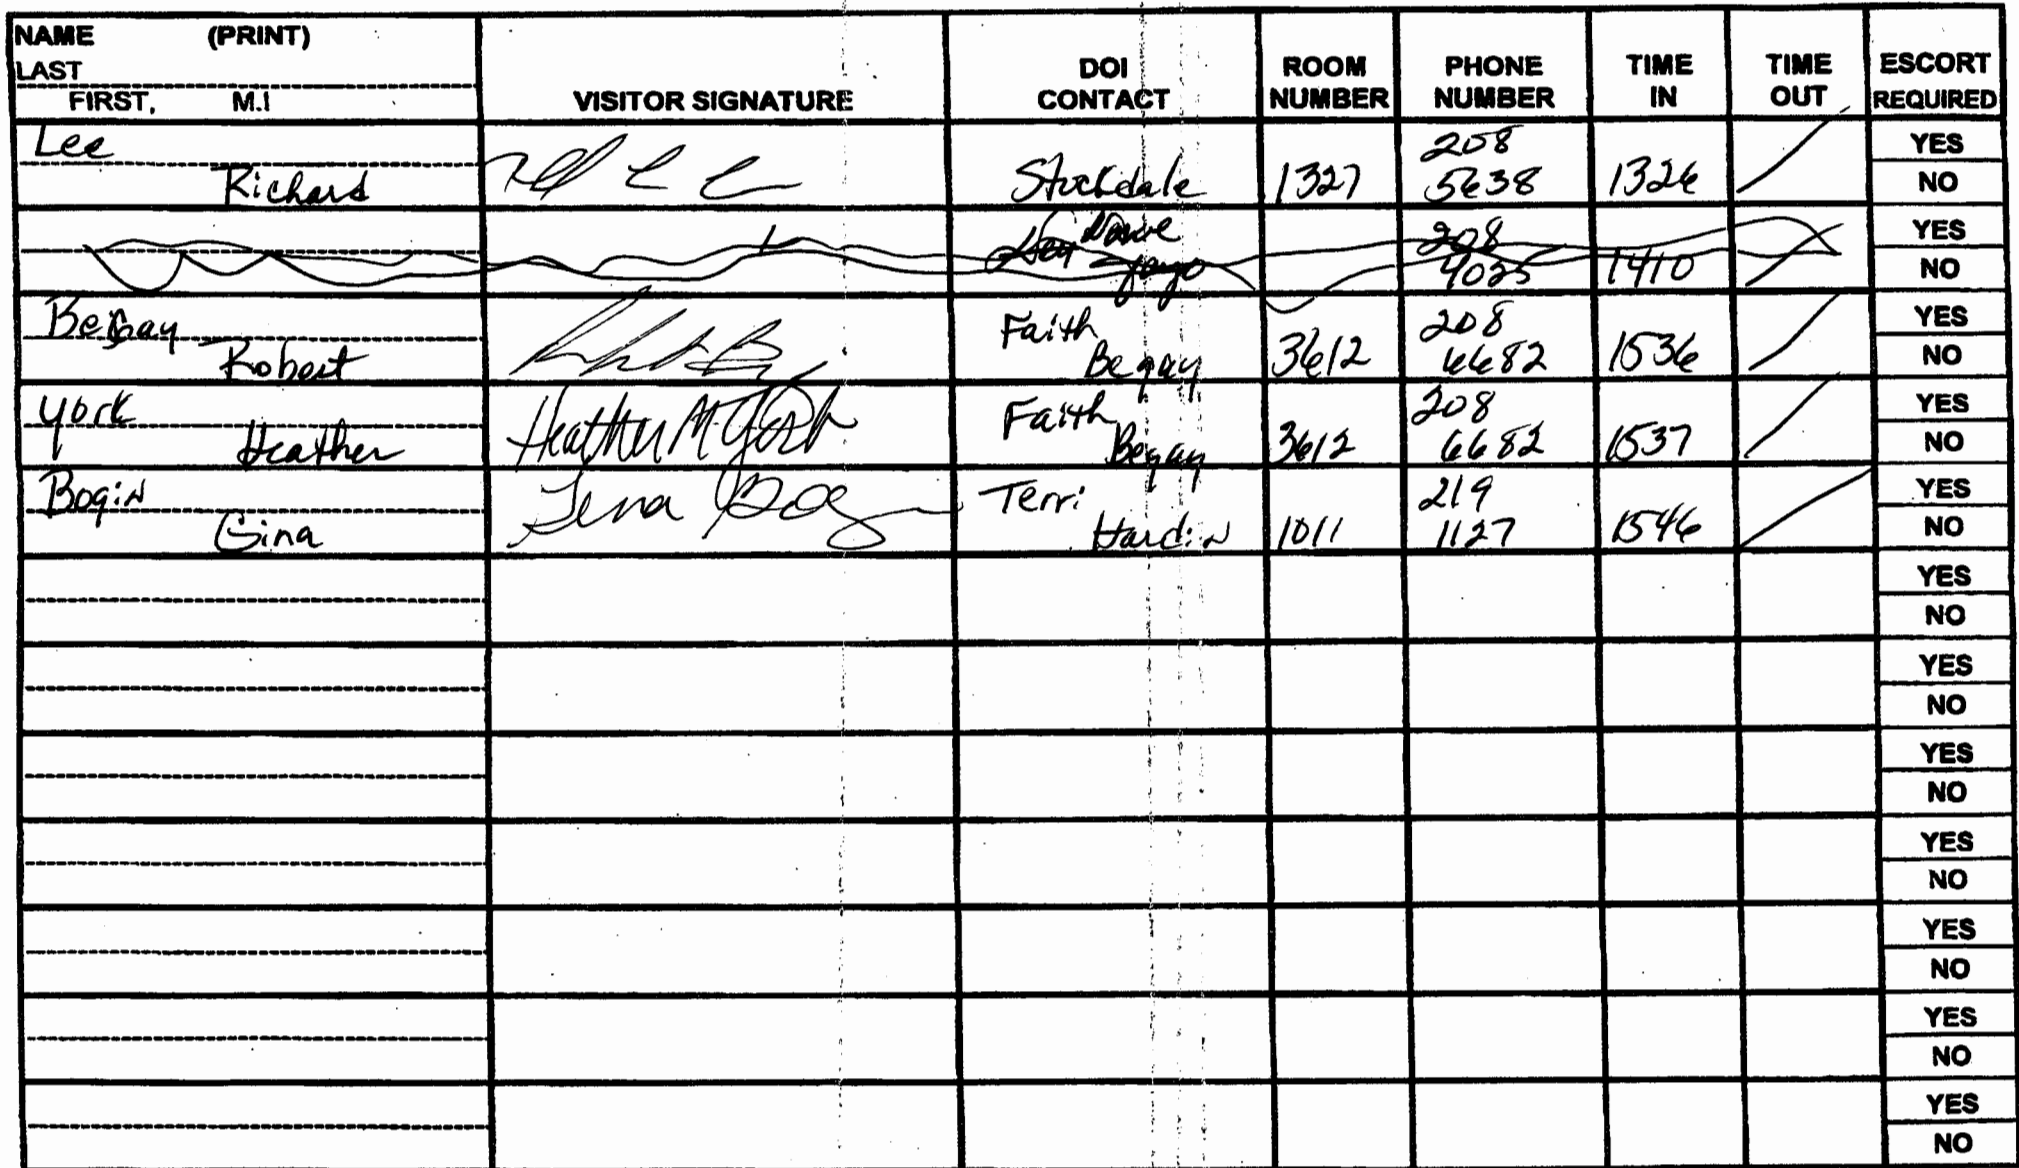 NAME (PRINT)
LAST
FIRST, M.I
VISITOR SIGNATURE
DOI
CONTACT
ROOM
NUMBER
PHONE
NUMBER
TIME
IN
TIME
OUT
ESCORT
REQUIRED
Lee
Richard
Stockdale
1327
208
5638
1326
YES
NO
208
4025
1410
YES
NO
Begay
Robert
Faith
Begay
3612
208
6682
1536
YES
NO
York
Heather
Heather M York
Faith
Begay
3612
208
6682
1537
YES
NO
Bogin
Gina
Gina Bog
Terri
Hardin
1011
219
1127
1546
YES
NO
YES
NO
YES
NO
YES
NO
YES
NO
YES
NO
YES
NO
YES
NO